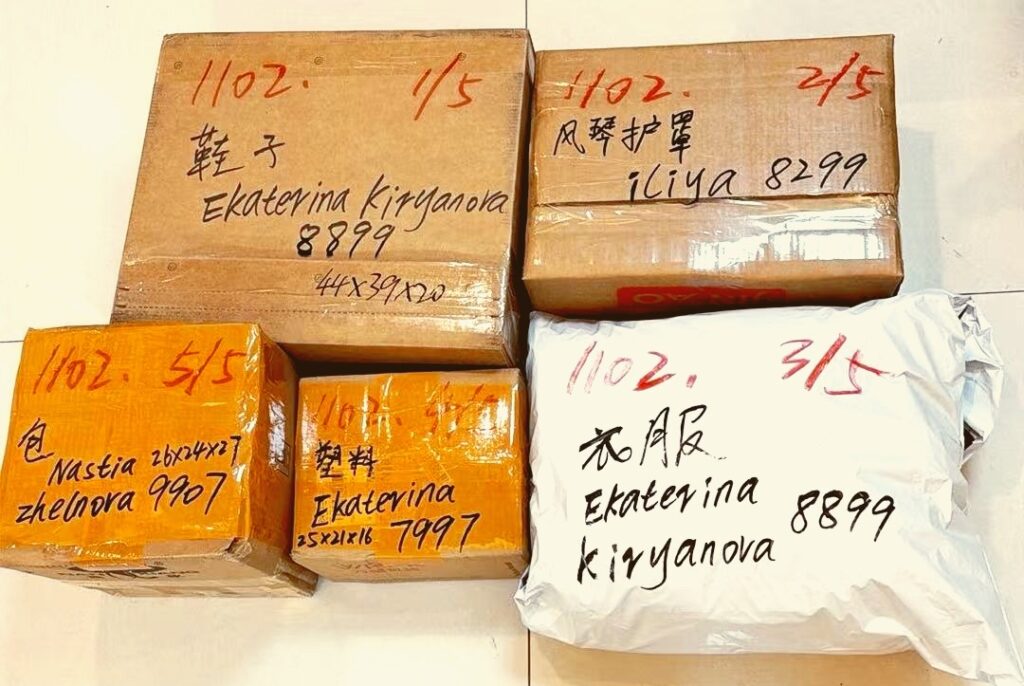 1102. 1/5
鞋子
Ekaterina Kiryanova
8899
44x39x20
1102. 2/5
风琴护罩
iliya 8299
1102. 5/5
包
Nastia 26x24x27
zhelnova 9907
1102. 4/5
塑料
Ekaterina
25x21x16 7997
1102. 3/5
衣服
Ekaterina
8899
kiryanova